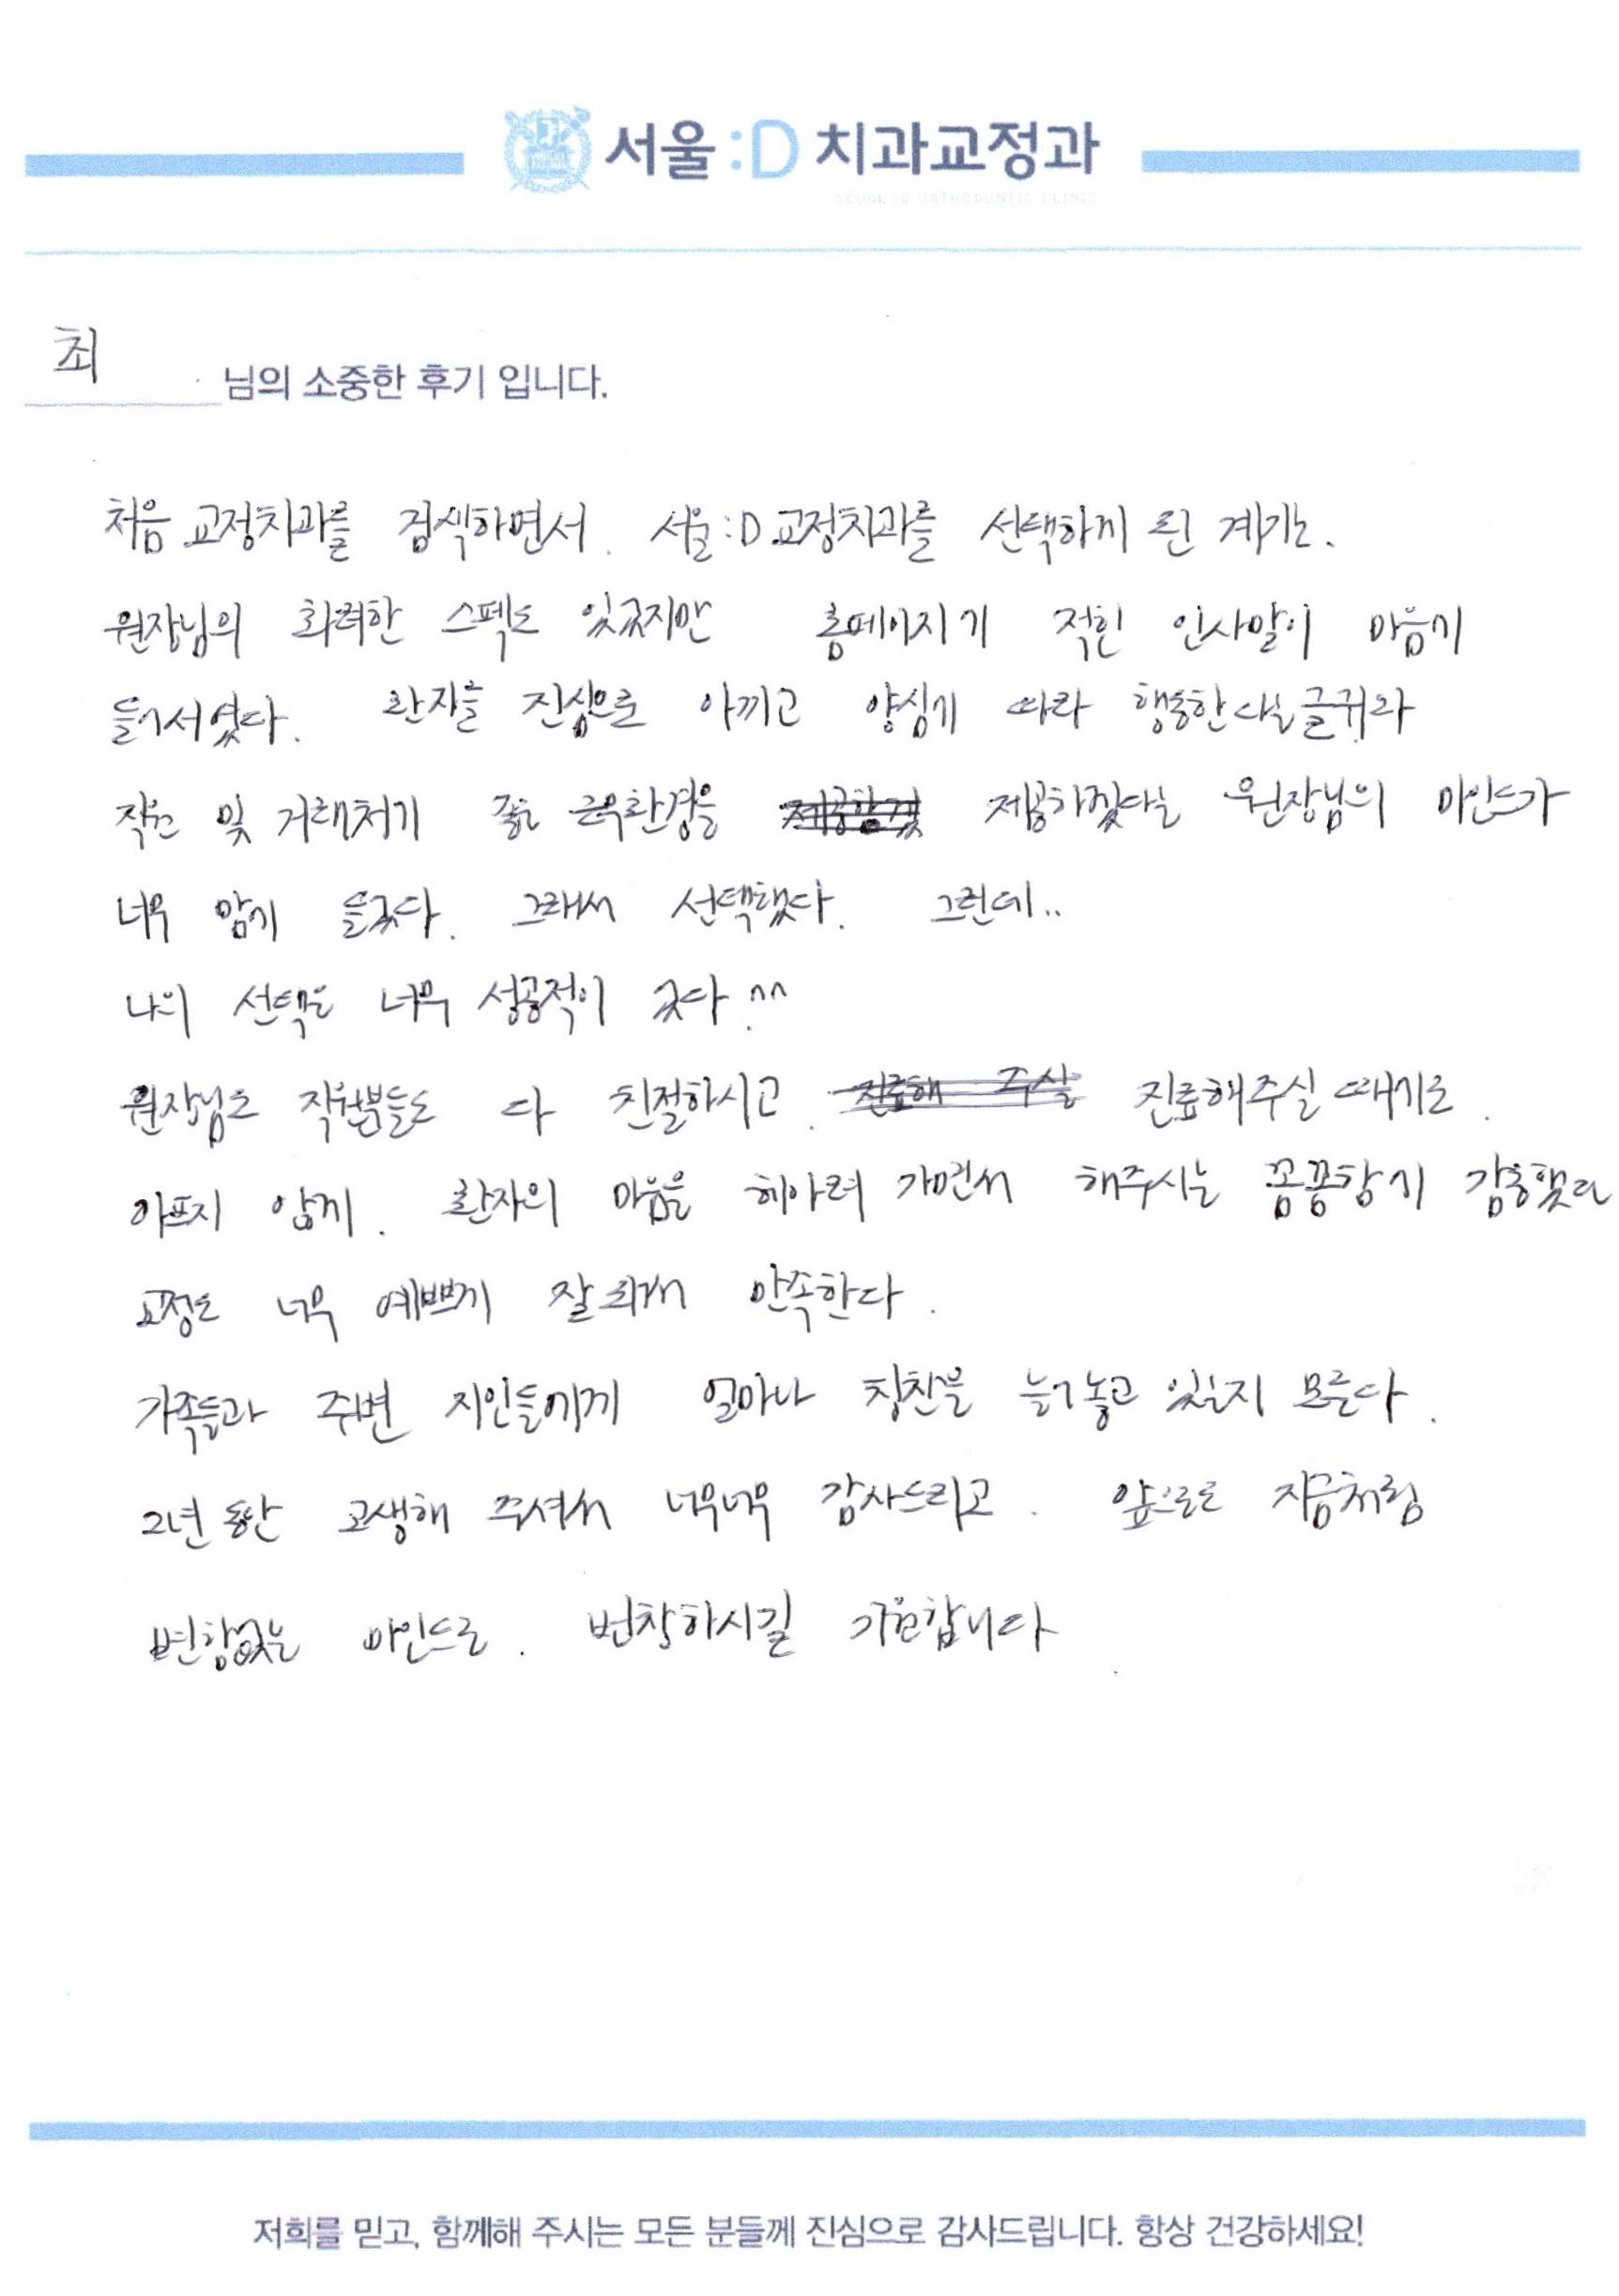 서울:D 치과교정과
SEOUL:D ORTHODONTIC CLINIC
최 님의 소중한 후기 입니다.
처음 교정치과를 검색하면서. 서울:D 교정치과를 선택하게 된 계기는.
원장님의 화려한 스펙도 있었지만 홈페이지에 적힌 인사말이 마음에
들어서였다. 환자를 진심으로 아끼고 양심에 따라 행동한다는 글귀와
직원 및 거래처에 좋은 근무환경을 제공하겠다는 원장님의 마인드가
너무 맘에 들었다. 그래서 선택했다. 그런데..
나의 선택은 너무 성공적이 었다.^^
원장님도 직원분들도 다 친절하시고. 진료해 주실 진료해주실 때에도.
아프지 않게. 환자의 마음을 헤아려 가면서 해주시는 꼼꼼함에 감동했다
교정도 너무 예쁘게 잘 되서 만족한다.
가족들과 주변 지인들에게 얼마나 칭찬을 늘어놓고 있는지 모른다.
2년 동안 고생해 주셔서 너무너무 감사드리고. 앞으로도 지금처럼
변함없는 마인드로. 번창하시길 기원합니다
저희를 믿고, 함께해 주시는 모든 분들께 진심으로 감사드립니다. 항상 건강하세요!